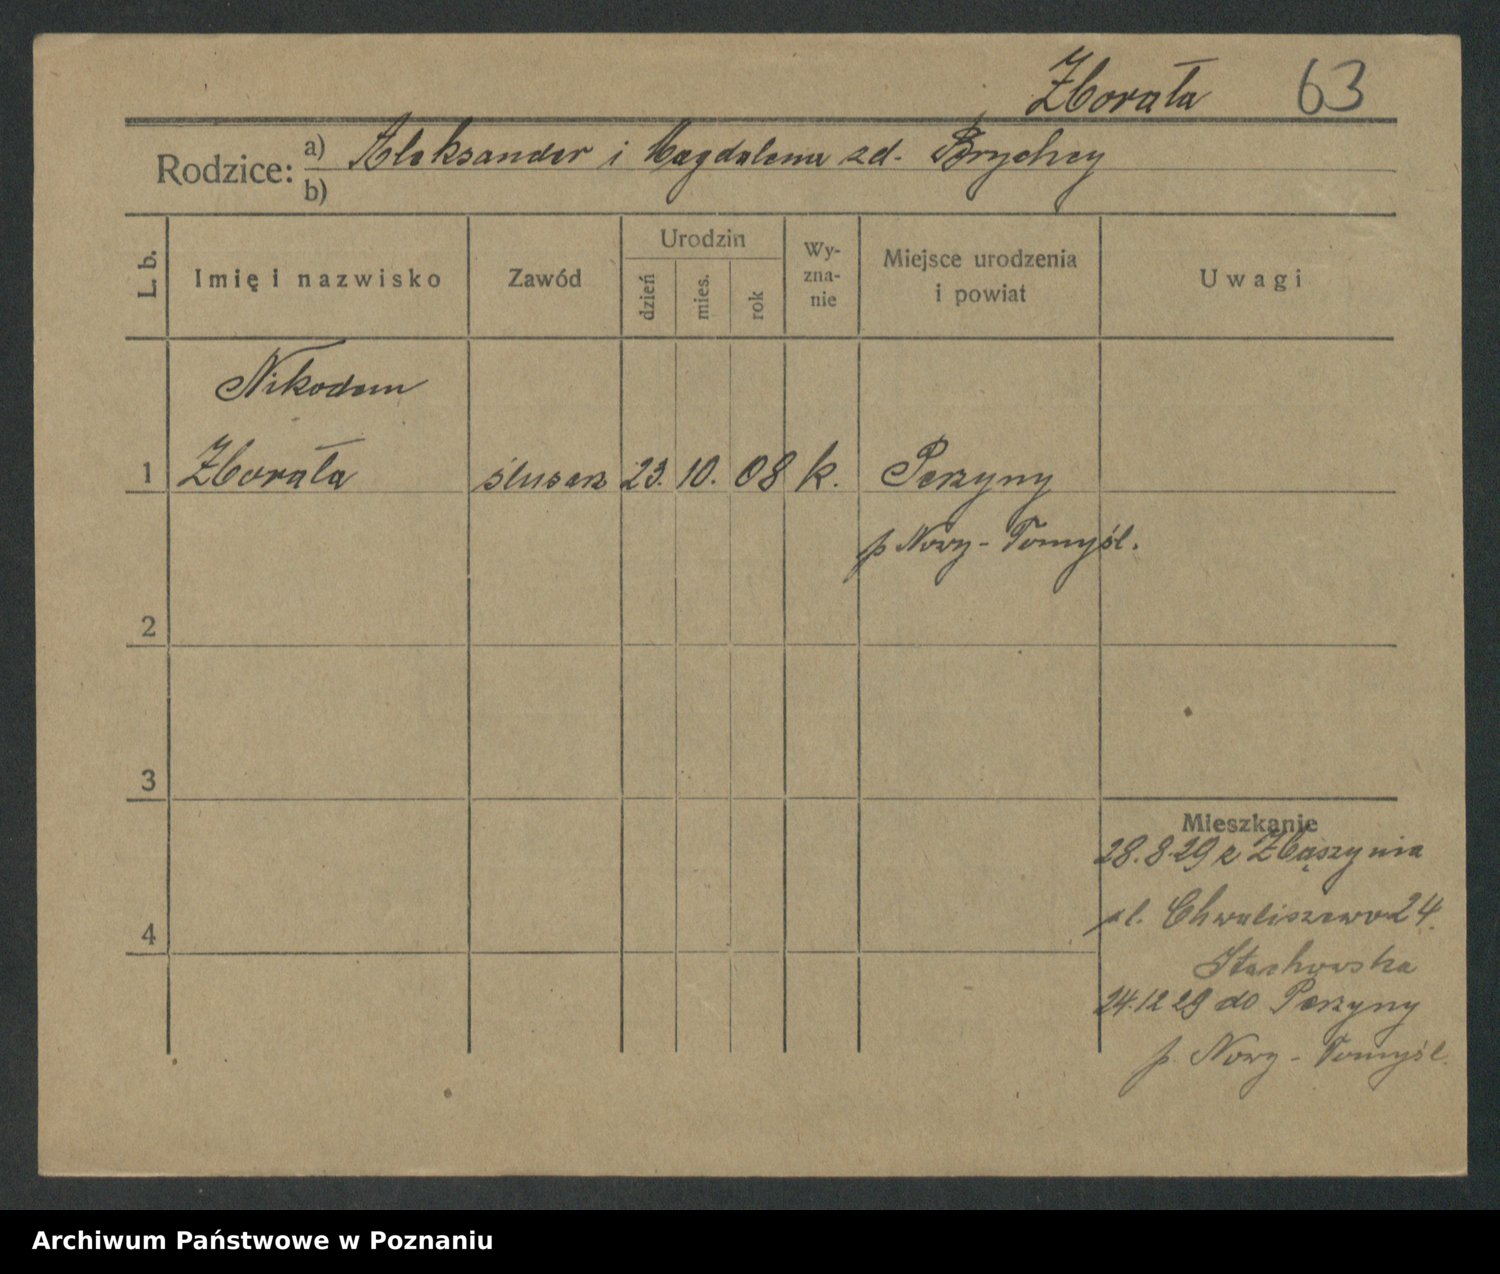 Zborała 63
Rodzice: a) Aleksander i Magdalena zd. Brychcy
b)
L. b. Imię i nazwisko Zawód Urodzin dzień mies. rok Wy-
zna-
nie Miejsce urodzenia
i powiat Uwagi
Nikodem
1 Zborała ślusarz 23. 10. 08 k. Perzyny
p Nowy-Tomyśl.
2
3
Mieszkanie
28.8.29 z Zbąszynia
ul. Chwaliszewo 24.
4
Stachowska
24.12 29 do Perzyny
p. Nowy-Tomyśl.
Archiwum Państwowe w Poznaniu